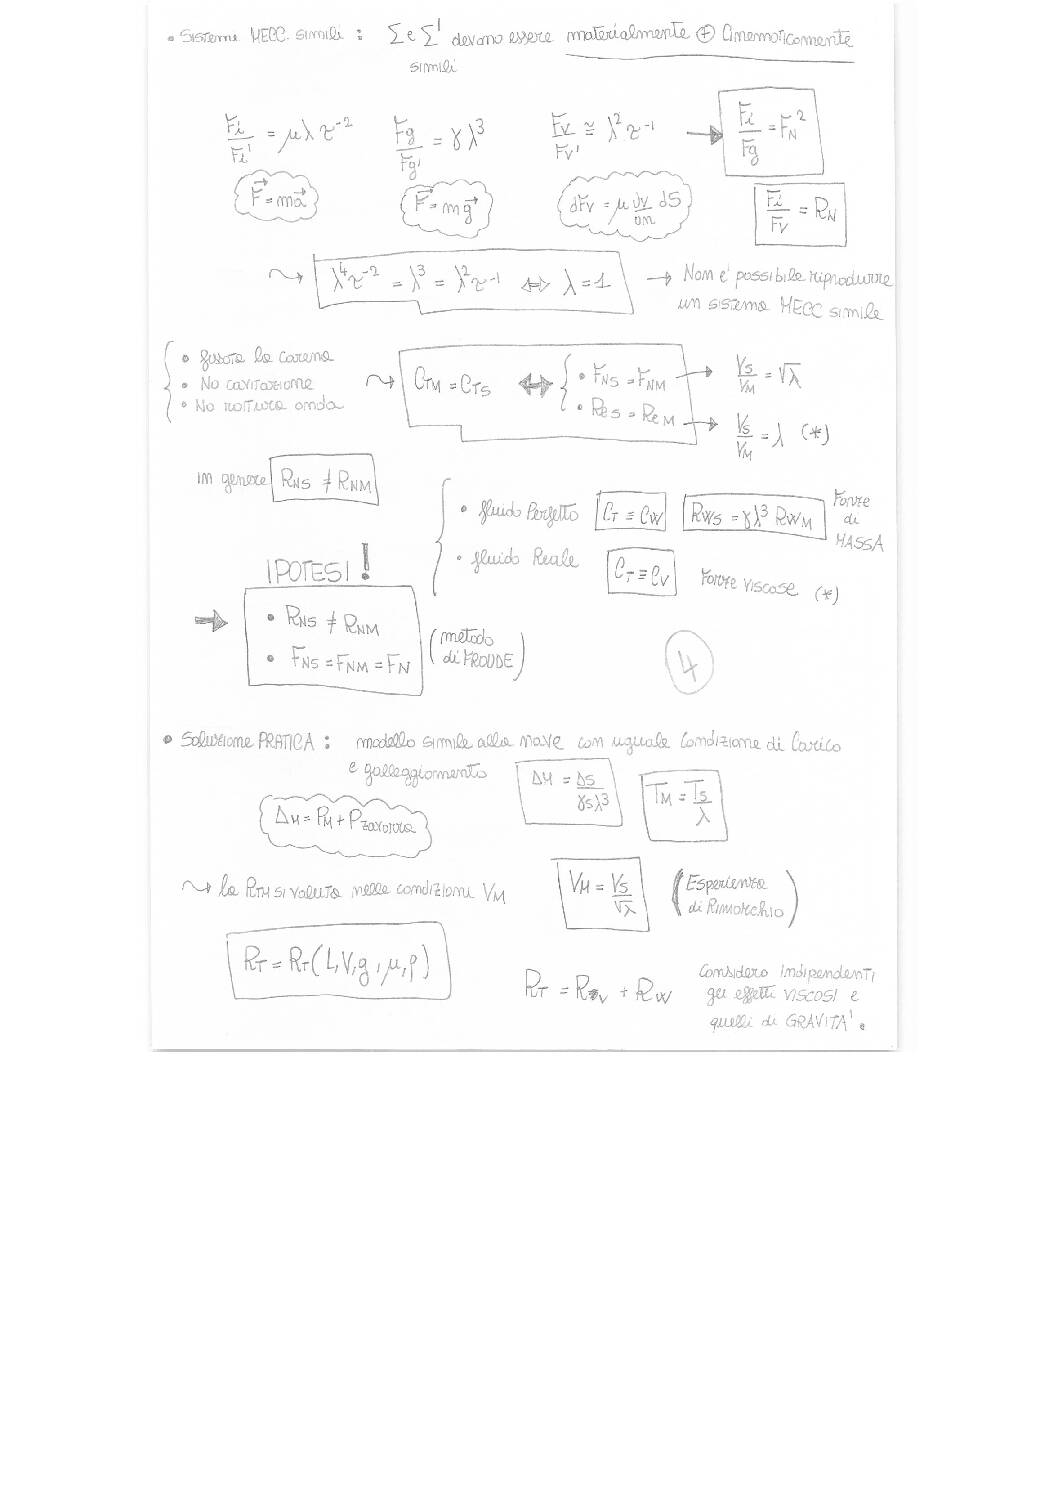 • Sistemi MECC. simili : Σ e Σ' devono essere materialmente ⊕ Cinematicamente
simili
Fi/Fi' = μλτ⁻² Fg/Fg' = γλ³ Fv/Fv' ≅ λ²τ⁻¹ → Fi/Fg = F_N²
F⃗=ma⃗ F⃗=mg⃗ dFv = μ ∂v/∂n dS Fi/Fv = R_N
⤳ λ⁴τ⁻² = λ³ = λ²τ⁻¹ ⇔ λ=1 → Non e' possibile riprodurre
un sistema MECC simile
• fissata la carena
• No cavitazione
• No rottura onda
⤳ C_TM = C_TS ⇔ { • F_NS = F_NM → Vs/V_M = √λ
• Re_S = Re_M → Vs/V_M = λ (*)
in genere R_NS ≠ R_NM
• fluido Perfetto C_T ≡ C_W R_WS = γλ³ R_WM Forze di MASSA
• fluido Reale C_T ≡ C_V Forze viscose (*)
IPOTESI !
→ • R_NS ≠ R_NM
• F_NS = F_NM = F_N
(metodo di FROUDE)
4
• Soluzione PRATICA : modello simile alla nave con uguale condizione di Carico
e galleggiamento Δ_M = Δs/γsλ³ T_M = Ts/λ
Δ_M = P_M + P_zavorra
⤳ la R_TM si valuta nelle condizioni V_M V_M = Vs/√λ (Esperienza di Rimorchio)
R_T = R_T(L,V,g,μ,ρ)
R_T = R_V + R_W
Considero indipendenti
gli effetti VISCOSI e
quelli di GRAVITA'.